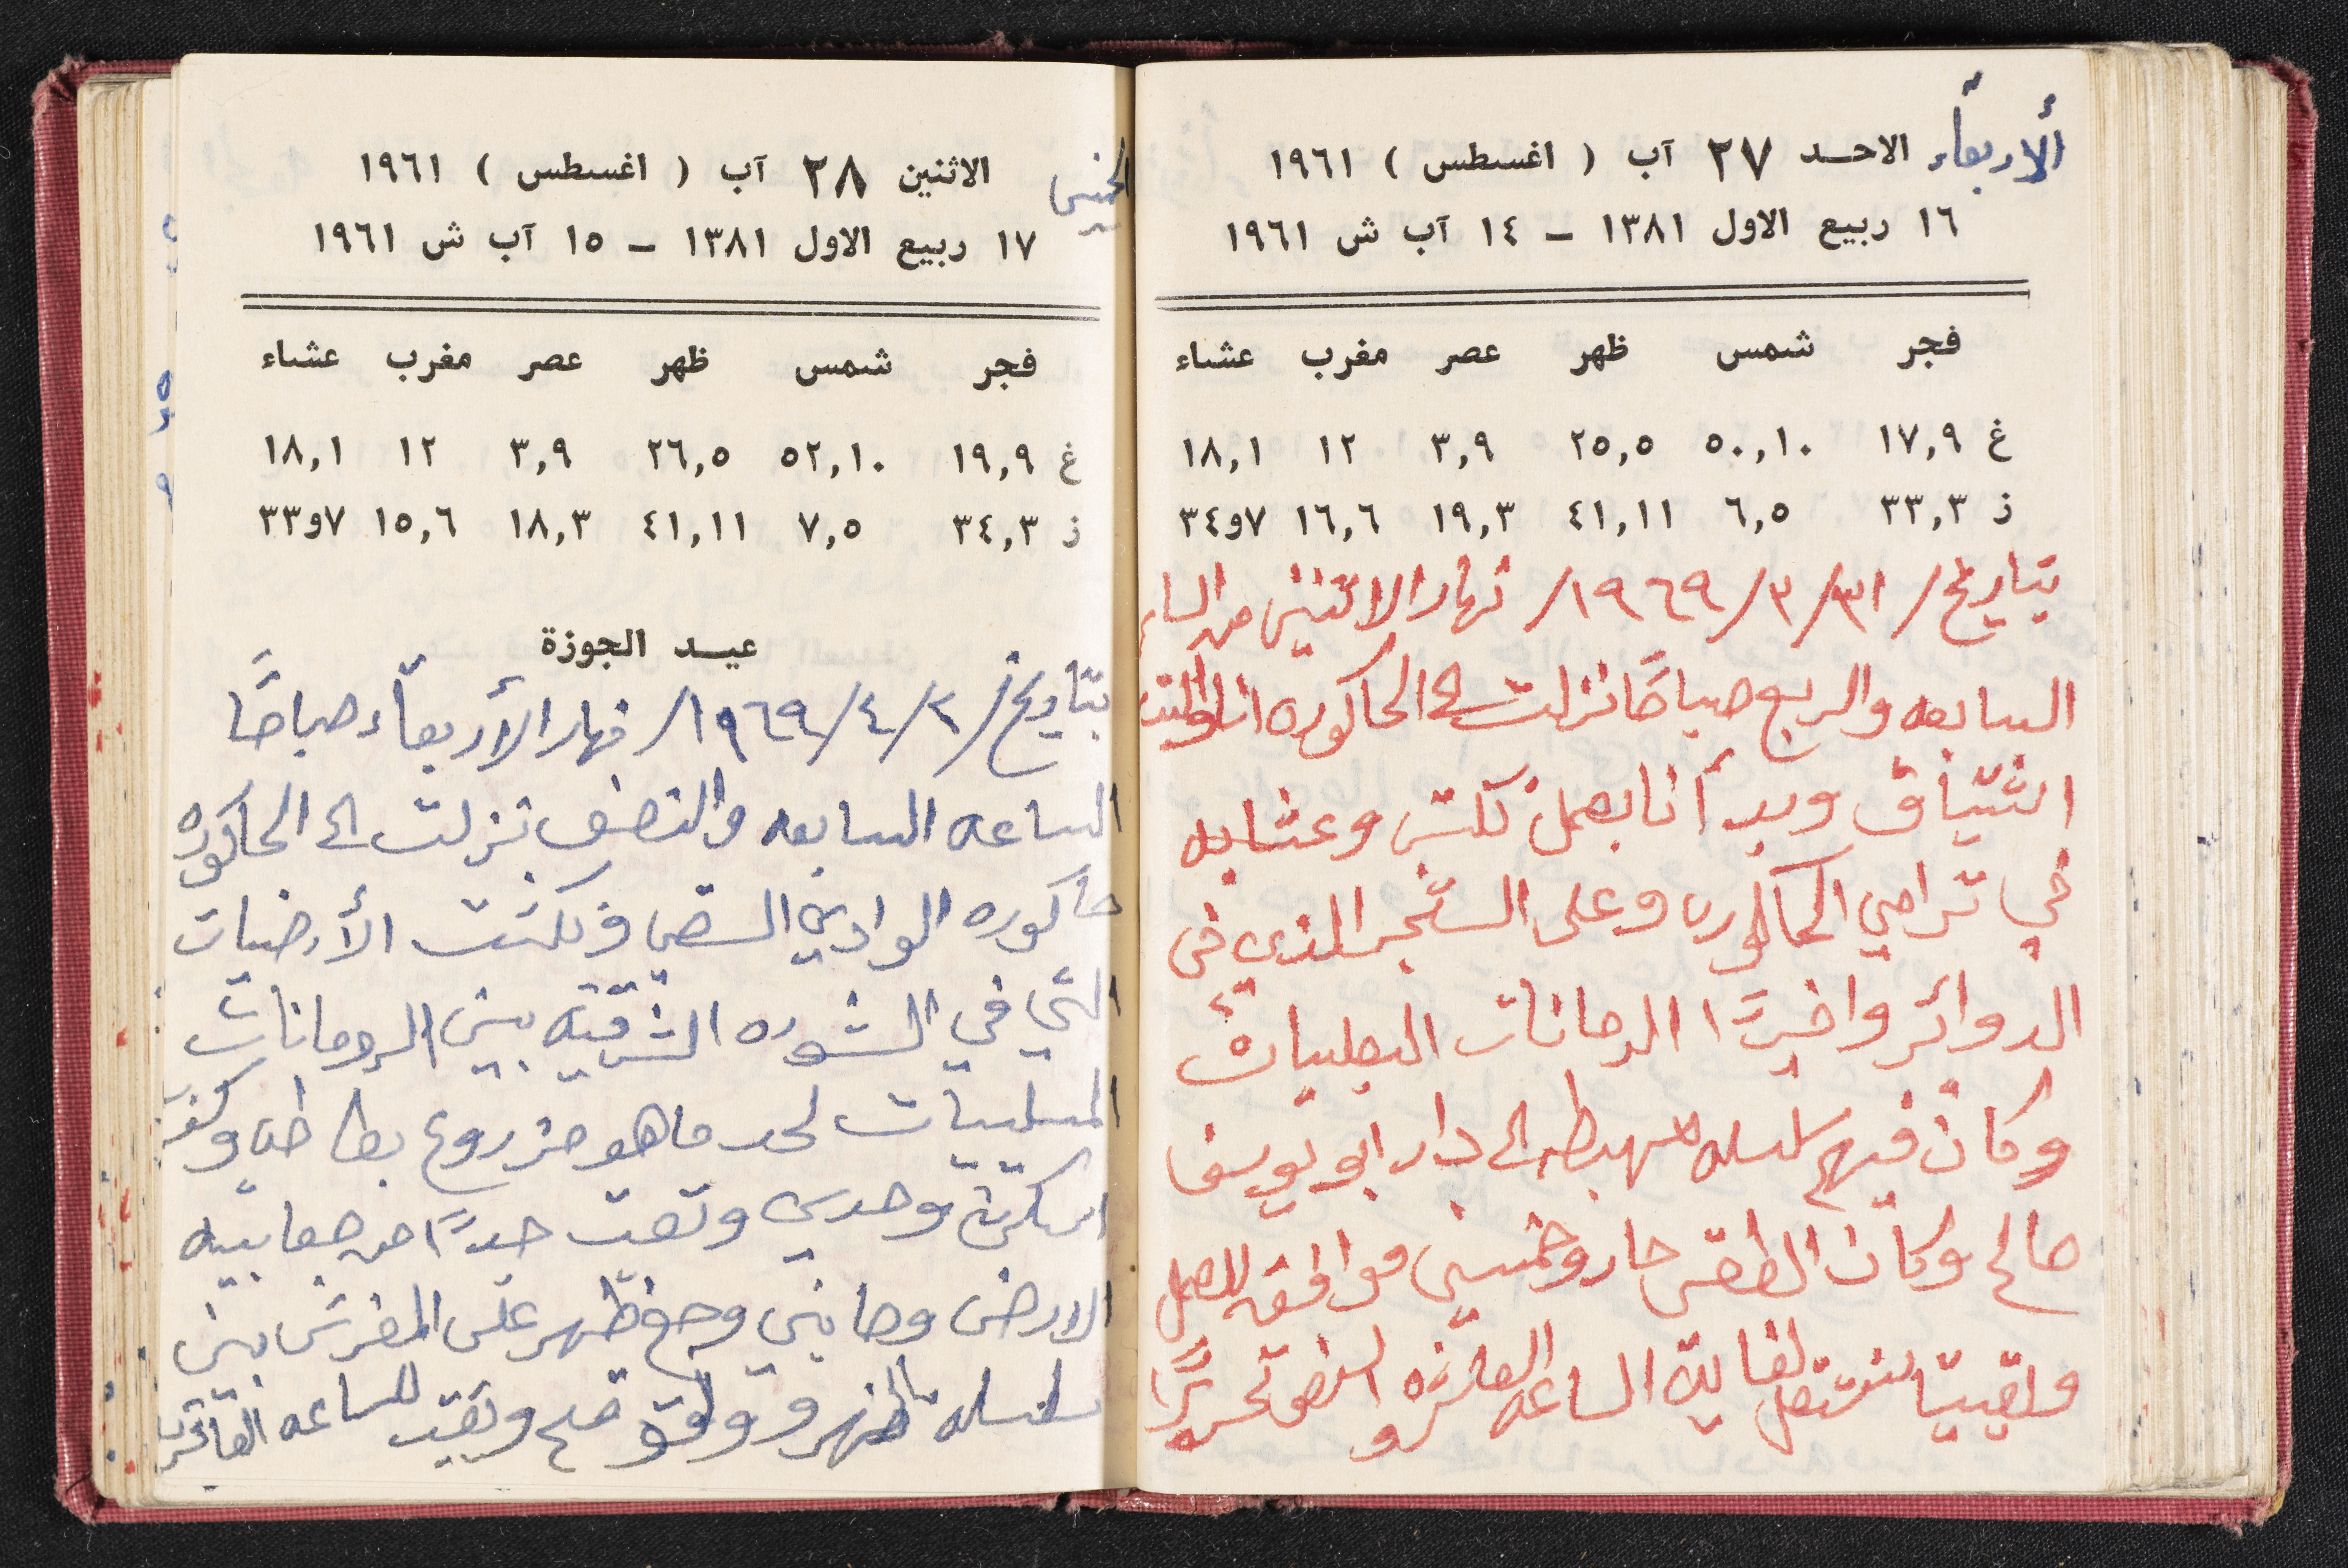 ألاربعاء الاحد ٢٧ آب ( اغسطس ) ١٩٦١
١٦ ربيع الاول ١٣٨١ – ١٤ آب ش ١٩٦١
فجر شمس ظهر عصر مغرب عشاء
غ ١٧,٩ ٥٠,١٠ ٢٥,٥ ٣,٩ ١٢ ١٨,١
ز ٣٣,٣ ٦,٥ ٤١,١١ ١٩,٣ ١٦,٦ ٧و٣٤
بتاريخ/ ٣١/ ٣/ ١٩٦٩/ نهار الاثنين من الساعه
السابعه والربع صباحًا نزلت الى الحاكوره انا
وبدأنا بعمل نكش وعشابه
في ترامي الحاكوره وعلى الشجر الذي في
الدوائر واخيرًا الرمانات البعليات
وكان فيهم سلسله مهبطه الى دار ابو يوسف
صالح وكان الطقس حار وخمسيني موافقه للعمل
وبقيت لغاية الساعه العاشره والنصف تحريرًا
الخميس الاثنين ٢٨ آب ( اغسطس ) ١٩٦١
١٧ ربيع الاول ١٣٨١ – ١٥ آب ش ١٩٦١
فجر شمس ظهر عصر مغرب عشاء
غ ١٩,٩ ٥٢,١٠ ٢٦,٥ ٣,٩ ١٢ ١٨,١
ز ٣٤,٣ ٧,٥ ٤١,١١ ١٨,٣ ١٥,٦ ٧و٣٣
عيد الجوزة
بتاريخ/ ٢/ ٤/ ١٩٦٩/ نهار الأربعاء صباحًا
الساعه السابعه والنصف نزلت الى الحاكوره
حاكوره الوادي السقي ونكشت الأرضيات
التي في الشوره الشرقيه بين الرومانات
المليسيات لحد ما هو مزروع بطاطه وكنت
وحدي وتعبت جدًا من صعابيه
الارض وصابني وجع ظهر على المفرش بين
سلسله الظهر وولوقو قدح وبقيت للساعه العاشره